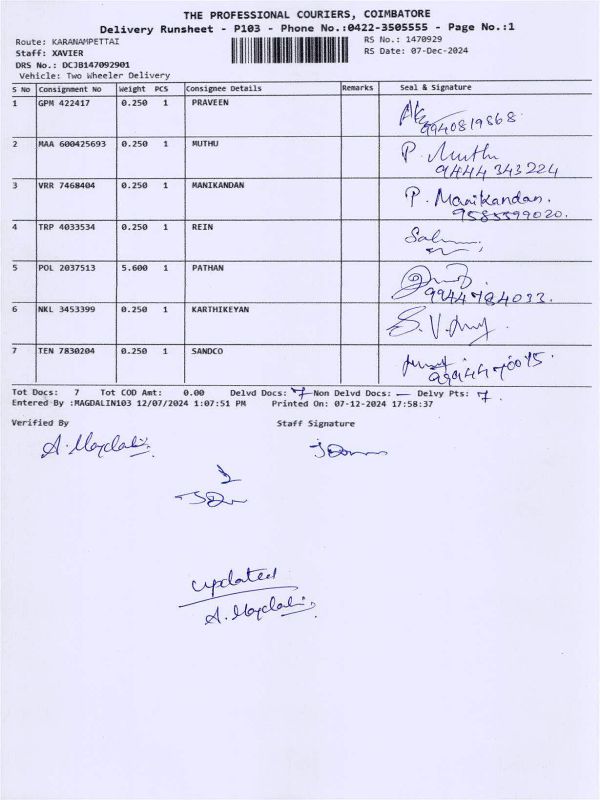 THE PROFESSIONAL COURIERS, COIMBATORE
Delivery Runsheet - P103 - Phone No.:0422-3505555 - Page No.:1
Route: KARANAMPETTAI
RS No.: 1470929
Staff: XAVIER
RS Date: 07-Dec-2024
DRS No.: DCJB147092901
Vehicle: Two Wheeler Delivery
S No Consignment No Weight PCS Consignee Details Remarks Seal & Signature
1 GPM 422417 0.250 1 PRAVEEN
9940819868
2 MAA 600425693 0.250 1 MUTHU P. Muthu
9444343224
3 VRR 7468404 0.250 1 MANIKANDAN P. Manikandan.
9585599020.
4 TRP 4033534 0.250 1 REIN
5 POL 2037513 5.600 1 PATHAN
9944784033.
6 NKL 3453399 0.250 1 KARTHIKEYAN
7 TEN 7830204 0.250 1 SANDCO
Tot Docs: 7 Tot COD Amt: 0.00 Delvd Docs: 7 Non Delvd Docs: — Delvy Pts: 7.
Entered By :MAGDALIN103 12/07/2024 1:07:51 PM Printed On: 07-12-2024 17:58:37
Verified By Staff Signature
A. Magdalin
updated
A. Magdalin